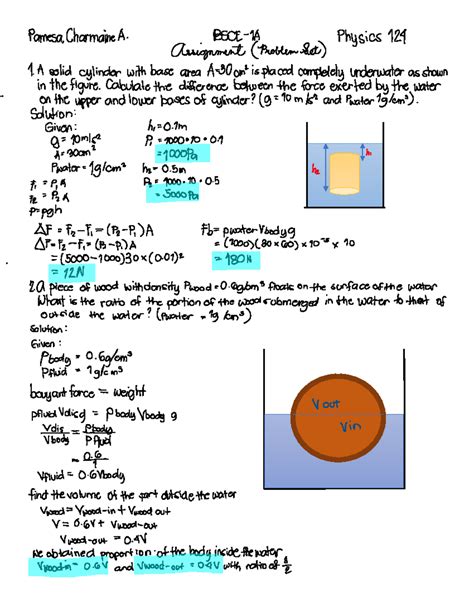 Pamesa, Charmaine A. BSCE-1A Physics 129
Assignment (Problem Set)
1. A solid cylinder with base area A=30cm² is placed completely underwater as shown
in the figure. Calculate the difference between the force exerted by the water
on the upper and lower bases of cylinder? (g=10 m/s² and ρwater 1g/cm³).
Solution:
Given: h₁=0.1m
g=10m/s² P₁=1000·10·0.1
A=30cm² =1000Pa
ρwater=1g/cm³ h₂=0.5m
F₁=P₁A P₂=1000·10·0.5
F₂=P₂A =5000Pa
P=ρgh
h₂
h₁
ΔF=F₂-F₁=(P₂-P₁)A Fb=ρwaterVbodyg
ΔF=F₂-F₁=(P₂-P₁)A =(1000)(80×60)×10⁻³×10
=(5000-1000)30×(0.01)² =180N
=12N
2. A piece of wood with density ρwood=0.6g/cm³ floats on the surface of the water
What is the ratio of the portion of the wood submerged in the water to that of
outside the water? (ρwater=1g/cm³)
Solution:
Given:
ρbody=0.6g/cm³
ρfluid=1g/cm³
bouyant force = weight
ρfluid Vdis g = ρbody Vbody g
Vdis/Vbody = ρbody/ρfluid
= 0.6/1
Vfluid=0.6Vbody
V out
V in
find the volume of the part outside the water
Vwood=Vwood-in+Vwood out
V=0.6V+Vwood-out
Vwood-out=0.4V
We obtained proportion of the body inside the water
Vwood-in=0.6V and Vwood-out=0.4V with ratio of